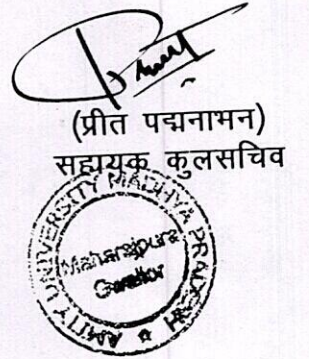 (प्रीत पद्मनाभन)
सहायक कुलसचिव
AMITY UNIVERSITY MADHYA PRADESH
Maharajpura
Gwalior